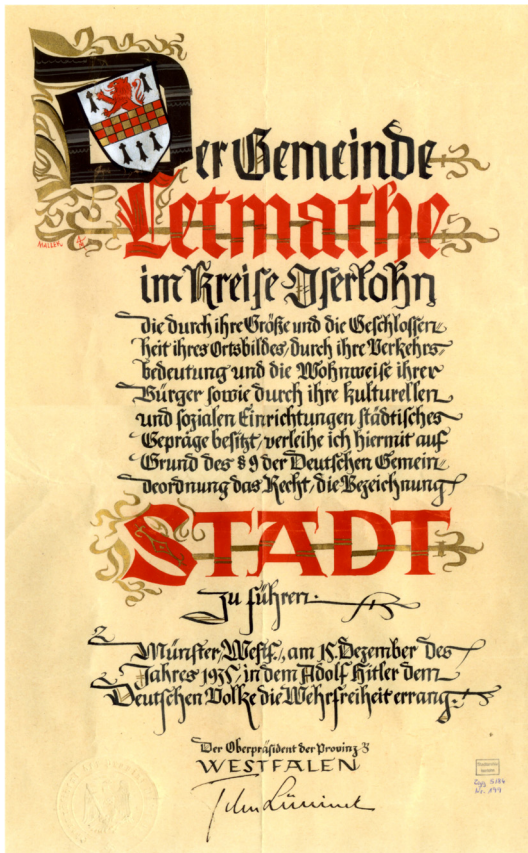 Der Gemeinde
Letmathe
im Kreise Iserlohn
die durch ihre Größe und die Geschlossen-
heit ihres Ortsbildes, durch ihre Verkehrs-
bedeutung und die Wohnweise ihrer
Bürger sowie durch ihre kulturellen
und sozialen Einrichtungen städtisches
Gepräge besitzt, verleihe ich hiermit auf
Grund des § 9 der Deutschen Gemein-
deordnung das Recht, die Bezeichnung
STADT
zu führen.
Münster, Westf., am 15. Dezember des
Jahres 1935, in dem Adolf Hitler dem
Deutschen Volke die Wehrfreiheit errang.
Der Oberpräsident der Provinz
WESTFALEN